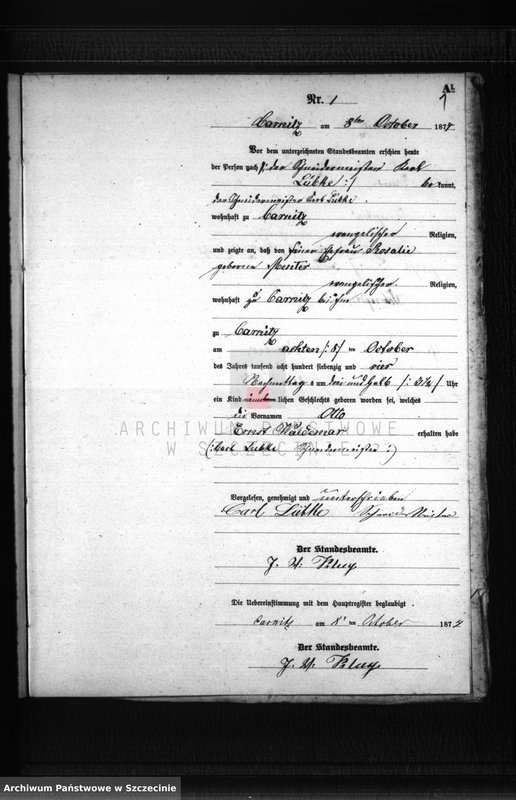 A1.
1
Nr. 1
Carnitz am 8ten October 1874
Vor dem unterzeichneten Standesbeamten erschien heute
der Person nach /: der Schneidermeister Karl
Lübke :/ be kannt,
der Schneidermeister Karl Lübke
wohnhaft zu Carnitz
evangelischer Religion,
und zeigte an, daß von seiner Ehefrau Rosalie
geborene Meister
evangelischer Religion,
wohnhaft zu Carnitz bei ihm
zu Carnitz
am achten /:8/ ten October
des Jahres tausend acht hundert siebenzig und vier
Nachmittags um drei und halb /: 3½ / Uhr
ein Kind männlichen Geschlechts geboren worden sei, welches
die Vornamen Otto
Ernst Waldemar erhalten habe
(: Carl Lübke Schneidermeister :)
Vorgelesen, genehmigt und unterschrieben
Carl Lübke Schneider Meister
Der Standesbeamte.
J. V.
Die Uebereinstimmung mit dem Hauptregister beglaubigt
Carnitz am 8ten October 1874
Der Standesbeamte.
J. V.
ARCHIWUM PAŃSTWOWE
W SZCZECINIE
Archiwum Państwowe w Szczecinie